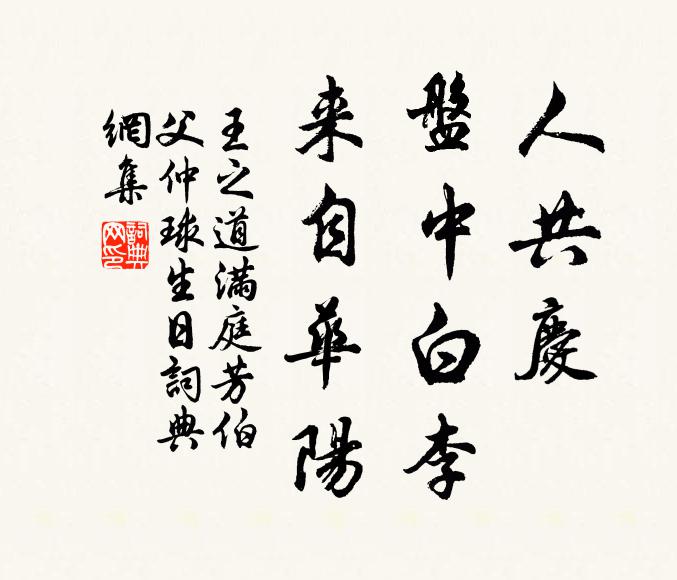 人共慶
盤中白李
来自華陽
王之道滿庭芳伯
父仲球生日詞典
網集
詞典
网印